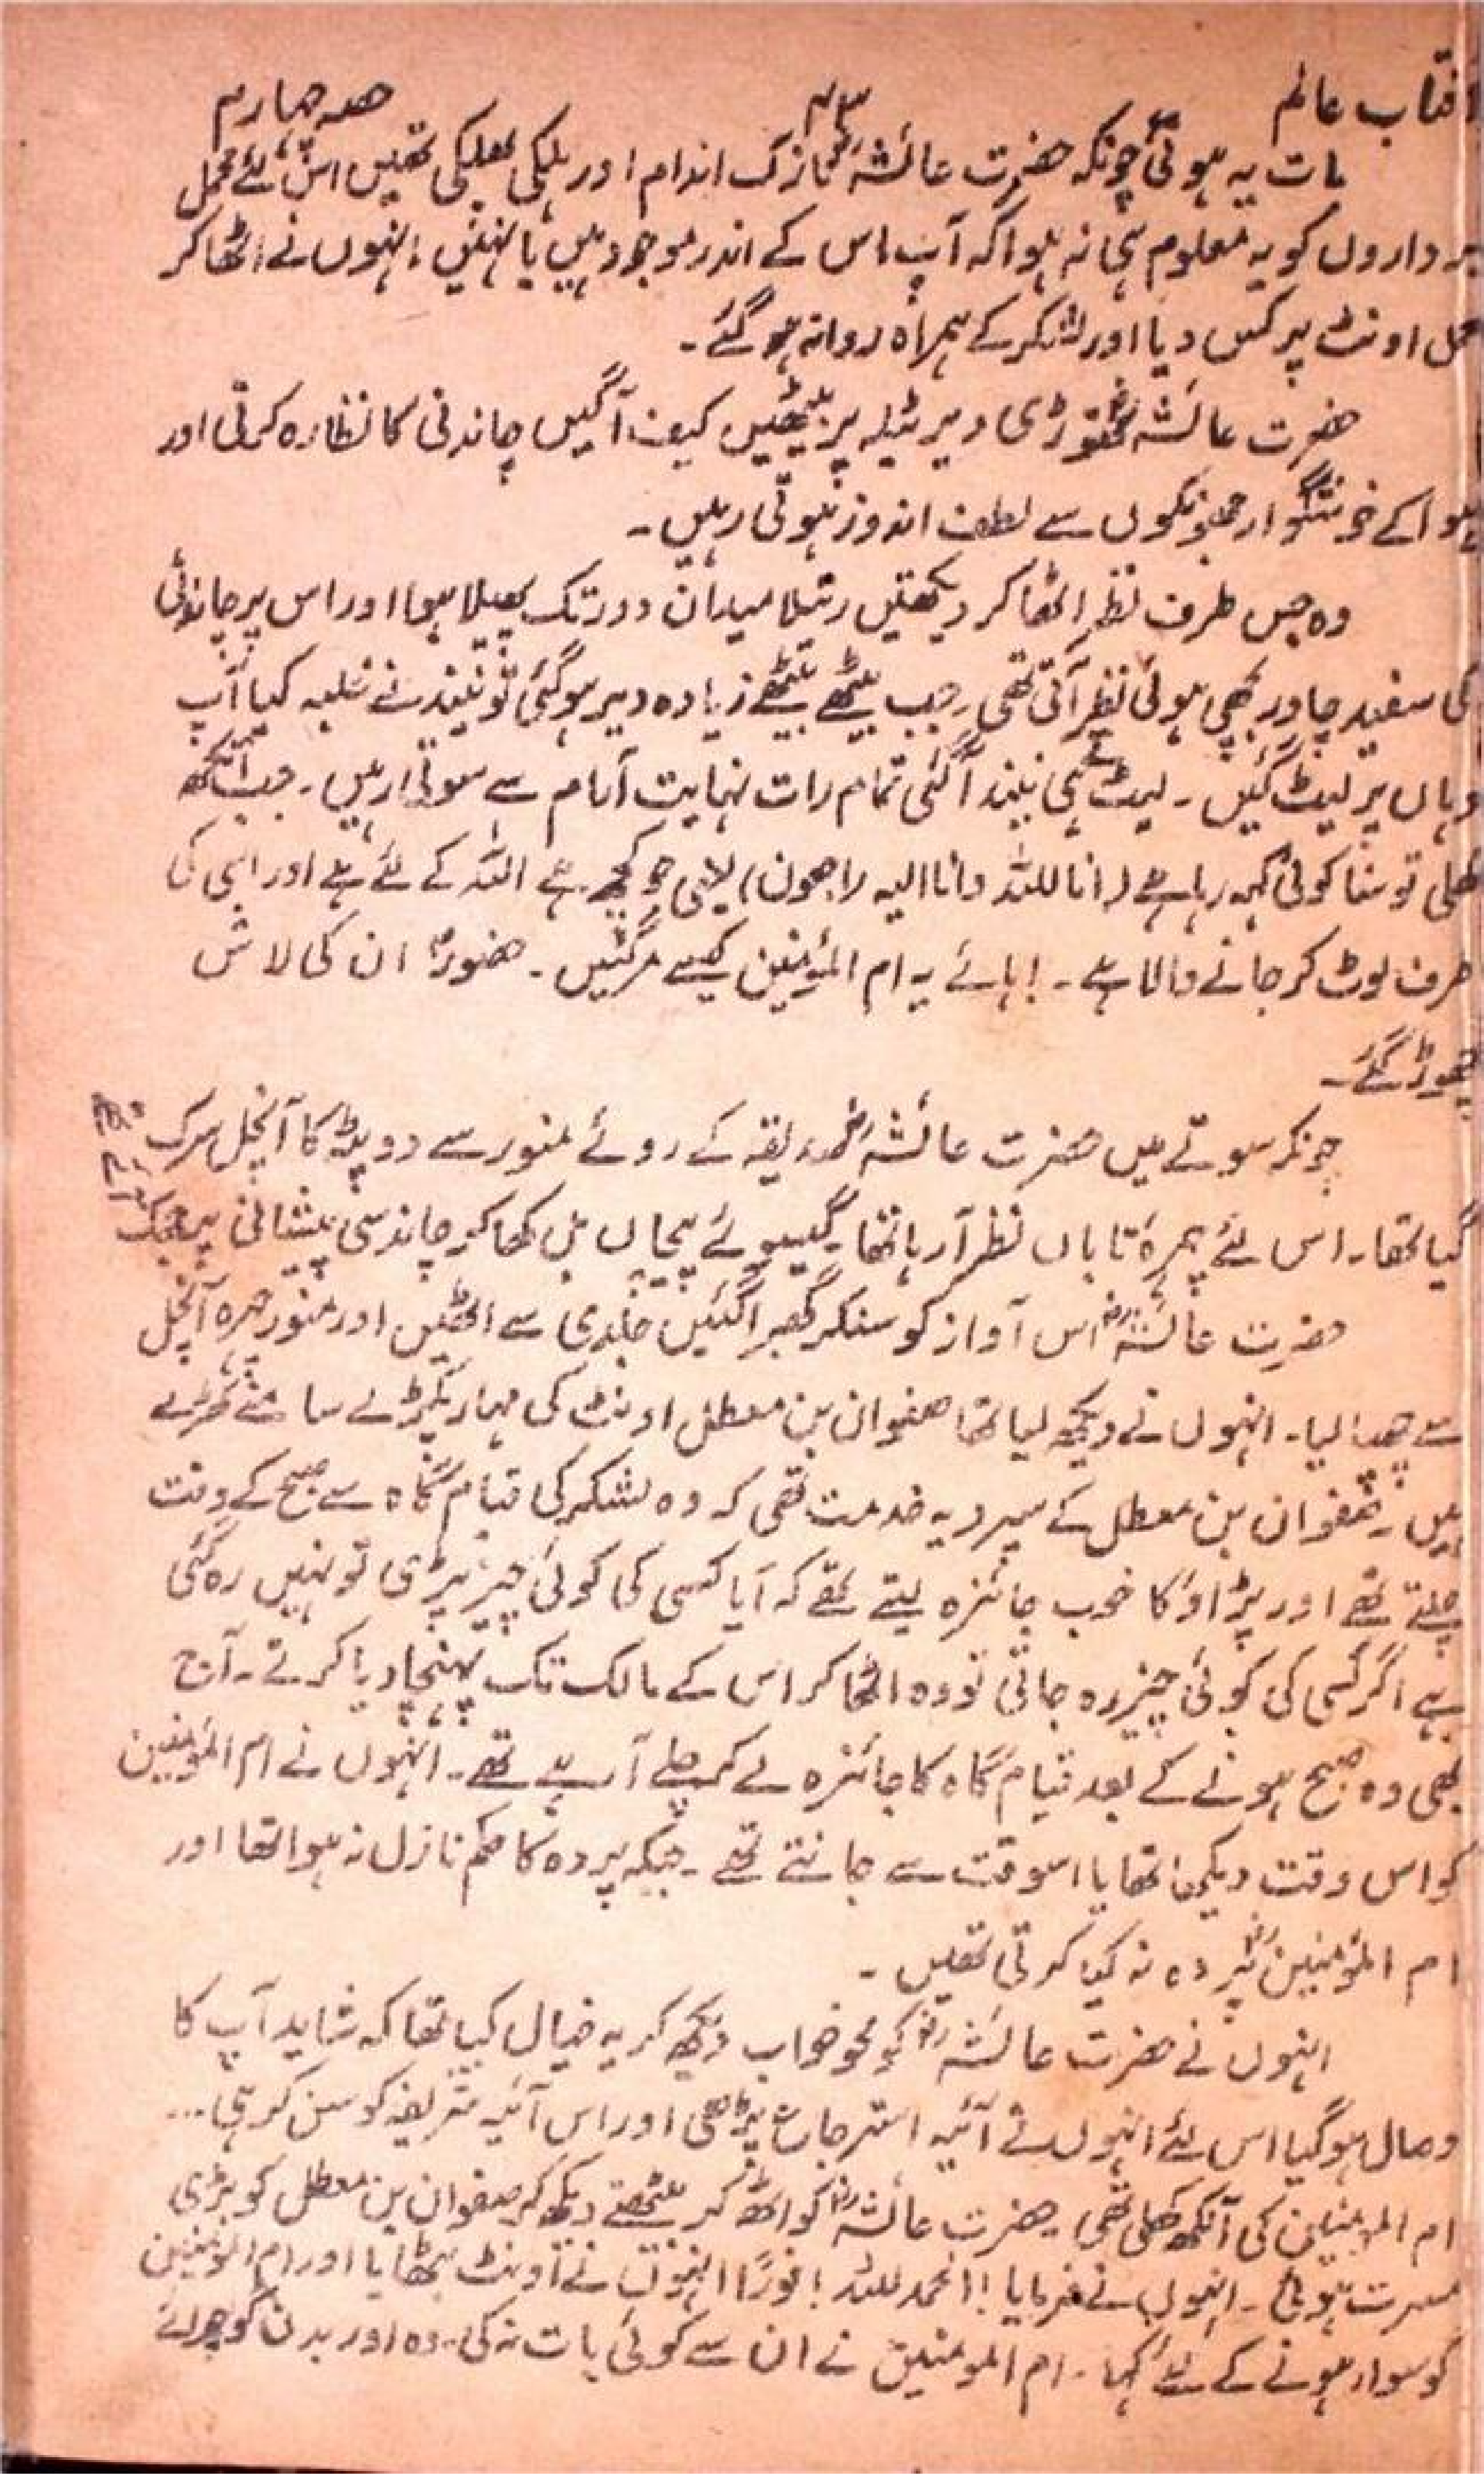 آفتاب عالم ۷۳ حصہ چہارم
بات یہ ہوئی چونکہ حضرت عائشہؓ نازک اندام اور ہلکی پھلکی تھیں اس لئے محمل
برداروں کو یہ معلوم ہی نہ ہوا کہ آپ اس کے اندر موجود ہیں یا نہیں انہوں نے اٹھا کر
محمل اونٹ پر کس دیا اور لشکر کے ہمراہ روانہ ہو گئے۔
حضرت عائشہؓ تھوڑی دیر ٹیلہ پر بیٹھیں کیف آگیں چاندنی کا نظارہ کرتی اور
ہوا کے خوشگوار جھونکوں سے لطف اندوز ہوتی رہیں۔
وہ جس طرف نظر اٹھا کر دیکھتیں رتیلا میدان دور تک پھیلا ہوا اور اس پر چاندنی
کی سفید چادر بچھی ہوئی نظر آتی تھی۔ جب بیٹھے بیٹھے زیادہ دیر ہو گئی تو نیند نے غلبہ کیا آپ
وہاں پر لیٹ گئیں۔ لیٹتے ہی نیند آ گئی تمام رات نہایت آرام سے سوتی رہیں۔ جب آنکھ
کھلی تو سنا کوئی کہہ رہا ہے (انا للہ وانا الیہ راجعون) یعنی جو کچھ ہے اللہ کے لئے ہے اور اسی کی
طرف لوٹ کر جانے والا ہے۔ ہائے یہ ام المؤمنین کیسے مر گئیں۔ حضورؐ ان کی لاش
چھوڑ گئے۔
چونکہ سوتے میں حضرت عائشہؓ صدیقہ کے روئے منور سے دوپٹہ کا آنچل سرک
گیا تھا۔ اس لئے چہرۂ تاباں نظر آ رہا تھا گیسوئے پیچاں بل کھا کر چاند سی پیشانی پر جھک
حضرت عائشہؓ اس آواز کو سنکر گھبرا گئیں جلدی سے اٹھیں اور منور چہرہ آنچل
سے چھپا لیا۔ انہوں نے دیکھ لیا تھا صفوان بن معطل اونٹ کی مہار پکڑے سامنے کھڑے
ہیں۔ صفوان بن معطل کے سپرد یہ خدمت تھی کہ وہ لشکر کی قیام گاہ سے صبح کے وقت
چلتے تھے اور پڑاؤ کا خوب جائزہ لیتے تھے کہ آیا کسی کی کوئی چیز پڑی تو نہیں رہ گئی
ہے اگر کسی کی کوئی چیز رہ جاتی تو وہ اٹھا کر اس کے مالک تک پہنچا دیا کرتے۔ آج
بھی وہ صبح ہونے کے بعد قیام گاہ کا جائزہ لے کر چلے آ رہے تھے۔ انہوں نے ام المؤمنین
کو اس وقت دیکھا تھا یا اسوقت سے جانتے تھے۔ جبکہ پردہ کا حکم نازل نہ ہوا تھا اور
ام المؤمنینؓ پردہ نہ کیا کرتی تھیں۔
انہوں نے حضرت عائشہؓ کو محو خواب دیکھ کر یہ خیال کیا تھا کہ شاید آپ کا
وصال ہو گیا اس لئے انہوں نے آئیہ استرجاع پڑھی اور اس آئیہ شریفہ کو سن کر ہی...
ام المومنین کی آنکھ کھلی تھی۔ حضرت عائشہؓ کو اٹھ کر بیٹھتے دیکھ کر صفوان بن معطل کو بڑی
مسرت ہوئی۔ انہوں نے فرمایا! الحمد للہ! فوراً انہوں نے اونٹ بٹھایا اور ام المؤمنین
کو سوار ہونے کے لئے کہا۔ ام المومنین نے ان سے کوئی بات نہ کی۔ وہ اور بدن کو چرائے